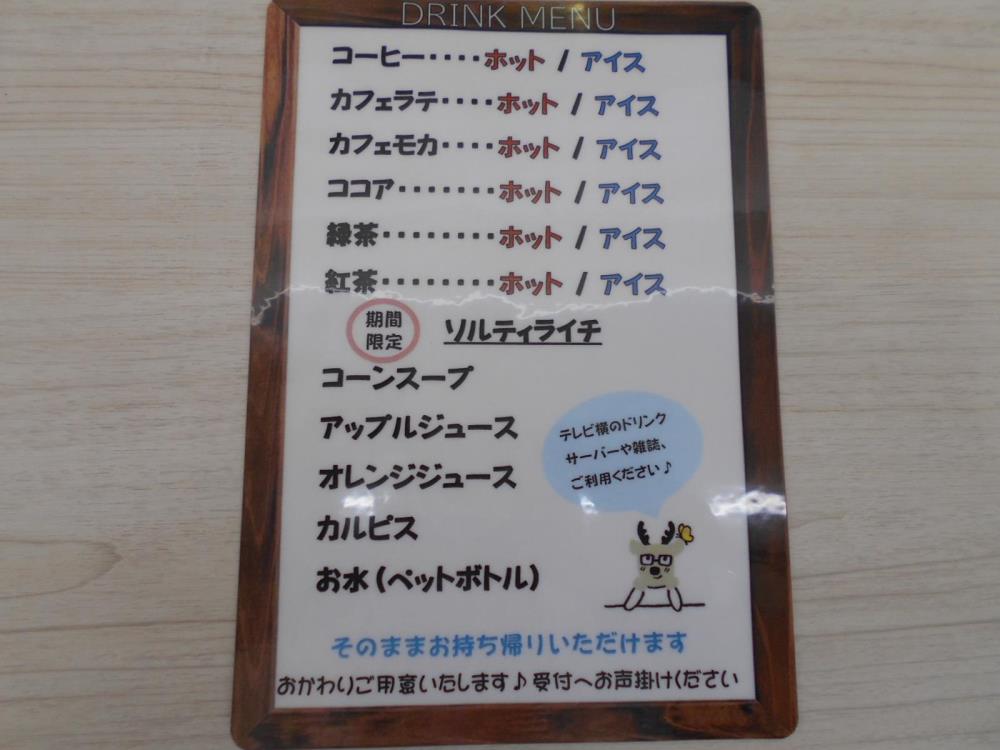 DRINK MENU
コーヒー････ホット / アイス
カフェラテ････ホット / アイス
カフェモカ････ホット / アイス
ココア･･･････ホット / アイス
緑茶････････ホット / アイス
紅茶････････ホット / アイス
期間
限定
ソルティライチ
コーンスープ
アップルジュース
オレンジジュース
カルピス
お水(ペットボトル)
テレビ横のドリンク
サーバーや雑誌、
ご利用ください♪
そのままお持ち帰りいただけます
おかわりご用意いたします♪受付へお声掛けください